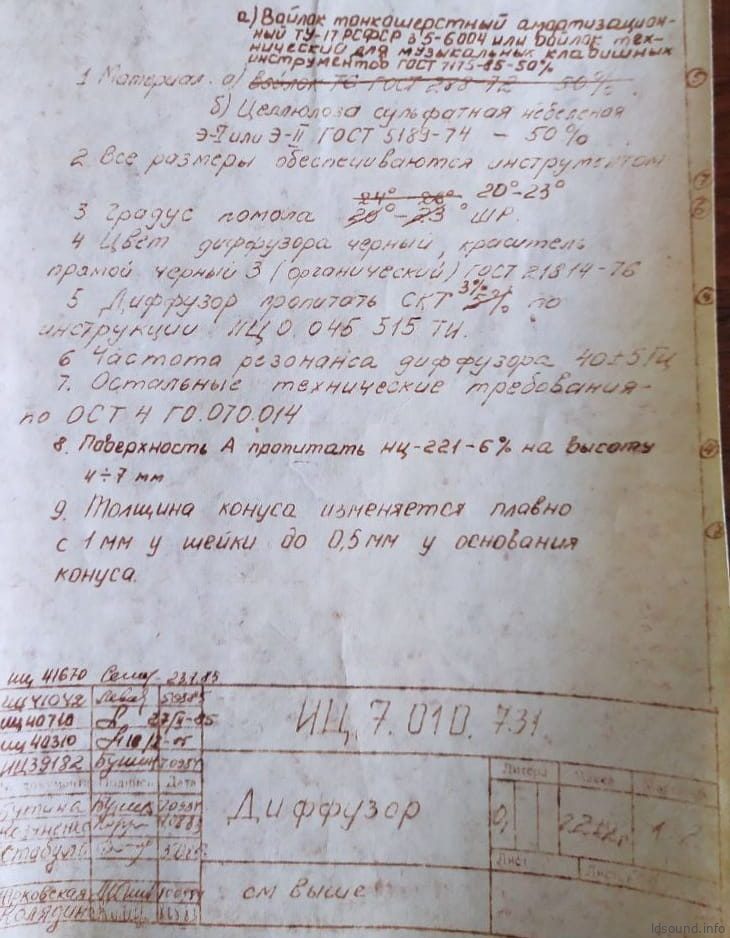 а) Войлок тонкошерстный амортизацион-
ный ТУ-17 РСФСР 35-6004 или войлок тех-
нический для музыкальных клавишных
инструментов ГОСТ 7175-85-50%
1 Материал. а) войлок ТС ГОСТ 288-72 50%.
б) Целлюлоза сульфатная небеленая
Э-I или Э-II ГОСТ 5189-74 - 50%
2 Все размеры обеспечиваются инструментом
24° 26° 20°-23°
3 Градус помола 20°-23° ШР.
4 Цвет диффузора черный, краситель
прямой черный З (органический) ГОСТ 21814-76
5 Диффузор пропитать СКТ 3% по
инструкции ИЦ0.045 515 ТИ.
6 Частота резонанса диффузора 40±5 Гц
7. Остальные технические требования-
по ОСТ 4 ГО.070.014
8. Поверхность А пропитать НЦ-221-6% на высоту
4÷7 мм
9. Толщина конуса изменяется плавно
с 1 мм у шейки до 0,5 мм у основания
конуса.
ИЦ 41670
ИЦ41042
ИЦ40710
ИЦ40310
ИЦ39182
ИЦ.7.010.731
Подпись Дата
Литера Масса
Диффузор
Лист
см выше
ldsound.info